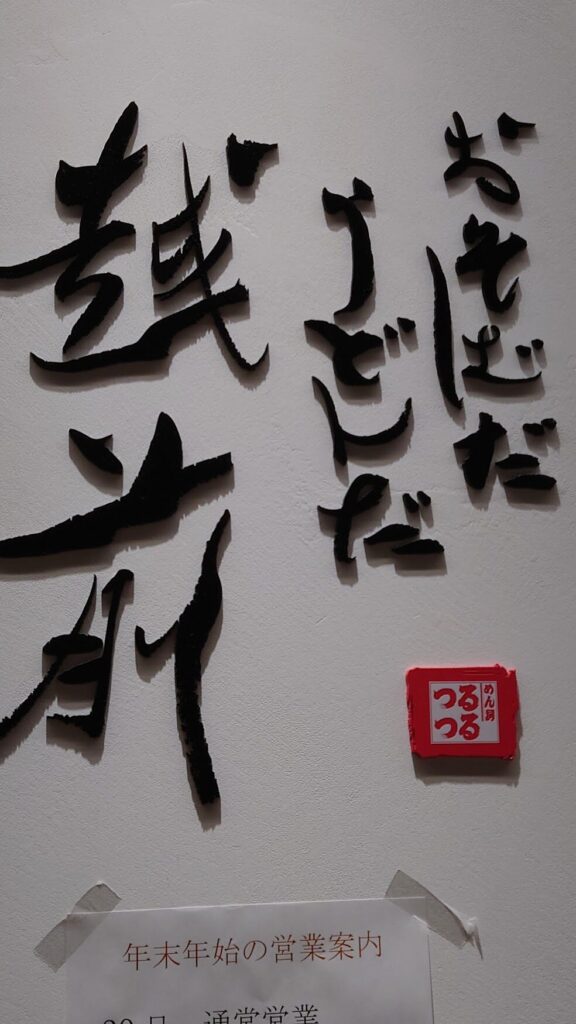 おそばだ
うどんだ
越前
めん房
つるつる
年末年始の営業案内
30日 通常営業